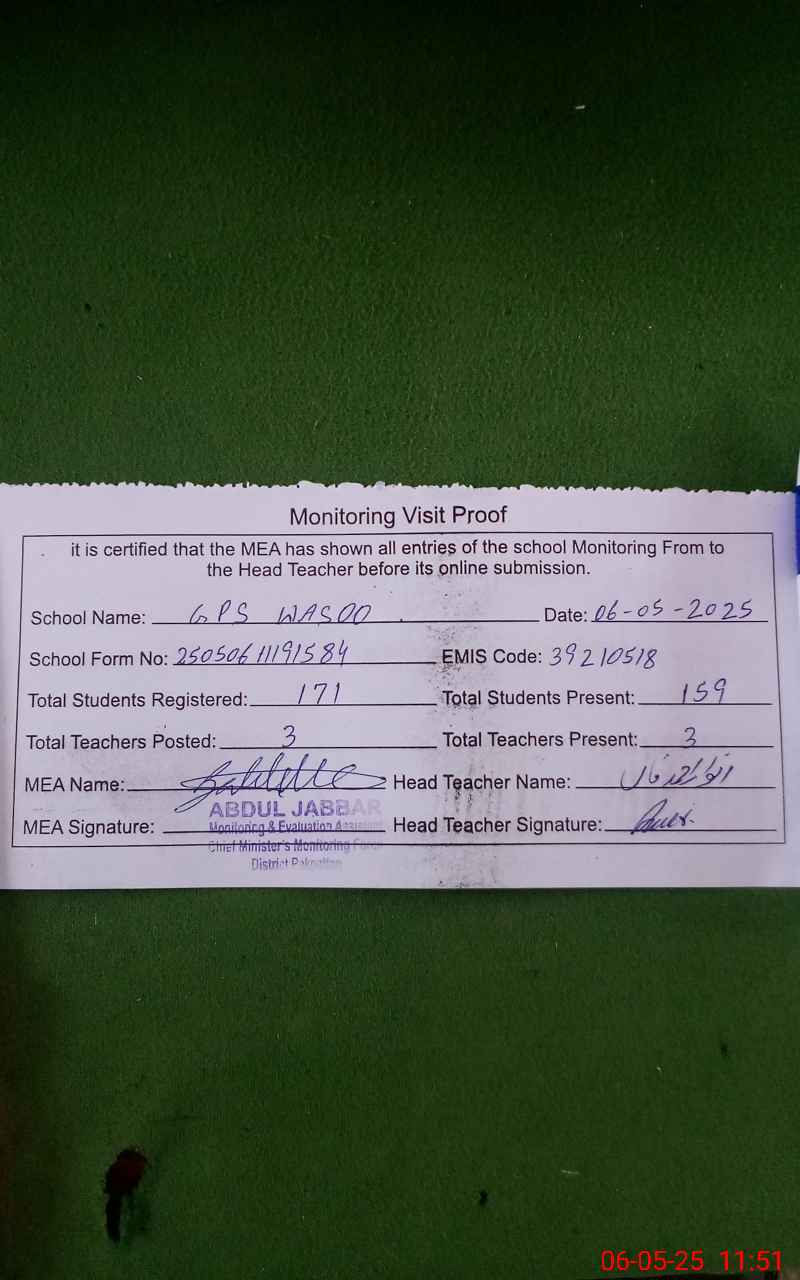 Monitoring Visit Proof
it is certified that the MEA has shown all entries of the school Monitoring From to
the Head Teacher before its online submission.
School Name: GPS WASOO Date: 06-05-2025
School Form No: 25050611191584 EMIS Code: 39210518
Total Students Registered: 171 Total Students Present: 159
Total Teachers Posted: 3 Total Teachers Present: 3
MEA Name: Head Teacher Name:
ABDUL JABBAR
MEA Signature: Monitoring & Evaluation Assistant Head Teacher Signature:
Chief Minister's Monitoring Force
District
06-05-25 11:51